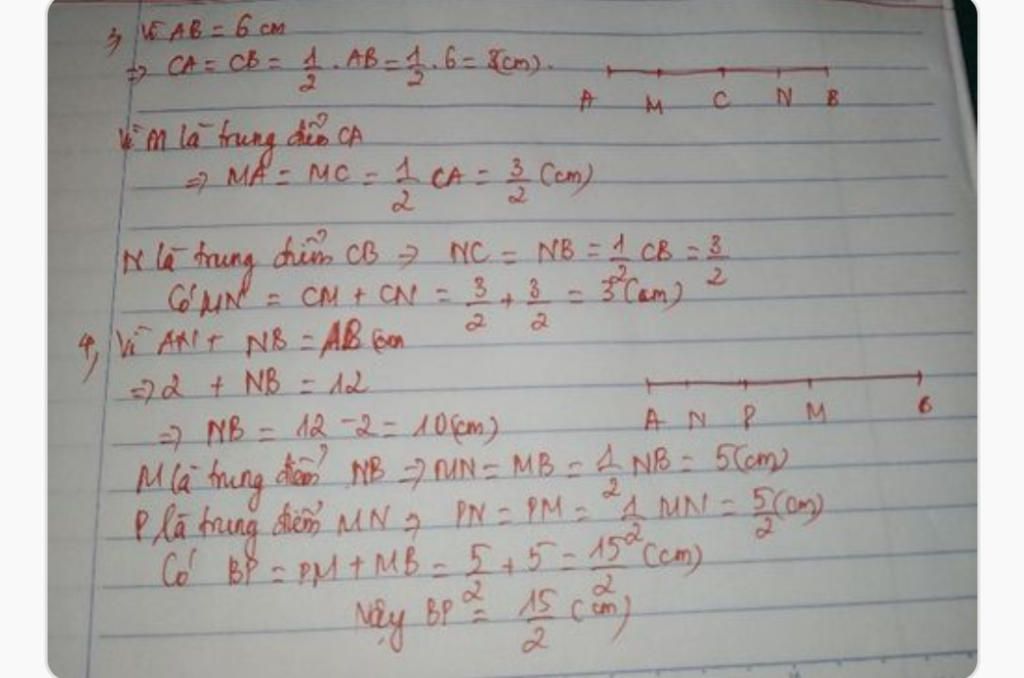 3, Vì AB = 6 cm
=> CA = CB = 1/2 . AB = 1/2 . 6 = 3(cm).
A M C N B
Vì M là trung điểm CA
=> MA = MC = 1/2 CA = 3/2 (cm)
N là trung điểm CB => NC = NB = 1/2 CB = 3/2
Có MN = CM + CN = 3/2 + 3/2 = 3 (cm)
4, Vì AN + NB = AB
=> 2 + NB = 12
A N P M B
=> NB = 12 - 2 = 10(cm)
M là trung điểm NB => MN = MB = 1/2 NB = 5(cm)
P là trung điểm MN => PN = PM = 1/2 MN = 5/2 (cm)
Có BP = PM + MB = 5/2 + 5 = 15/2 (cm)
Vậy BP = 15/2 (cm)